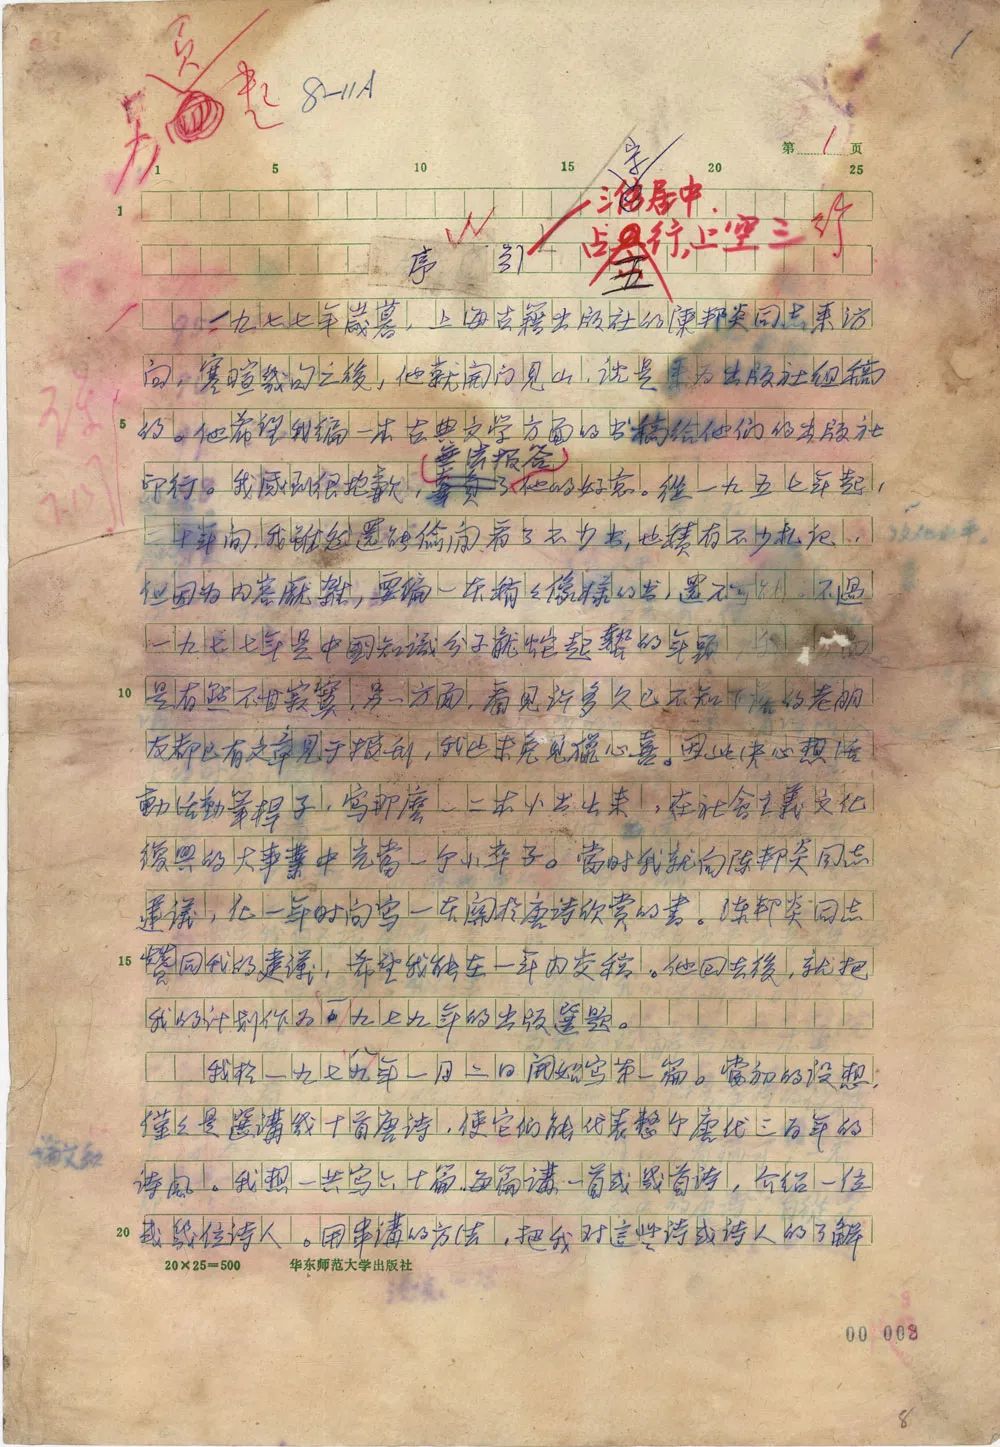 8-11A
1
第 1 页
1 5 10 15 20 25
1
三
居中.
占
五
行,上空三行
序 引
一九七七年歲暮，上海古籍出版社的陳邦炎同志来访
问，寒暄幾句之後，他就開门见山，说是来为出版社组稿
5 的。他希望我编一本古典文学方面的书稿给他们的出版社
無法报答
印行。我感到很抱歉，辜負了他的好意。從一九五七年起，
二十年间，我雖然還能偷闲看了不少书，也積有不少札记，
但因为内容厐雜，要编一本稍々像樣的书，還不可能。不過
一九七七年是中國知識分子龍蛇起蟄的年頭
10 是有些不甘寂寞，另一方面，看见许多久已不知下落的老朋
友都已有文章见于报刊，我也未免见獵心喜。因此决心想活
動活動筆桿子，写那麼一二本小书出来，在社会主義文化
復興的大事業中充當一个小卒子。當时我就向陈邦炎同志
建議，化一年时间写一本關於唐诗欣赏的書。陈邦炎同志
15 赞同我的建議，希望我能在一年内交稿。他回去後，就把
我的计划作为一九七九年的出版選题。
我於一九七八年一月二日開始写第一篇。當初的设想，
僅々是選講幾十首唐诗，使它们能代表整个唐代三百年的
诗風。我想一共写六十篇，每篇講一首或幾首诗，介绍一位
20 或幾位诗人。用串講的方法，把我对這些诗或诗人的了解
20×25=500 华东师范大学出版社
00 008
8